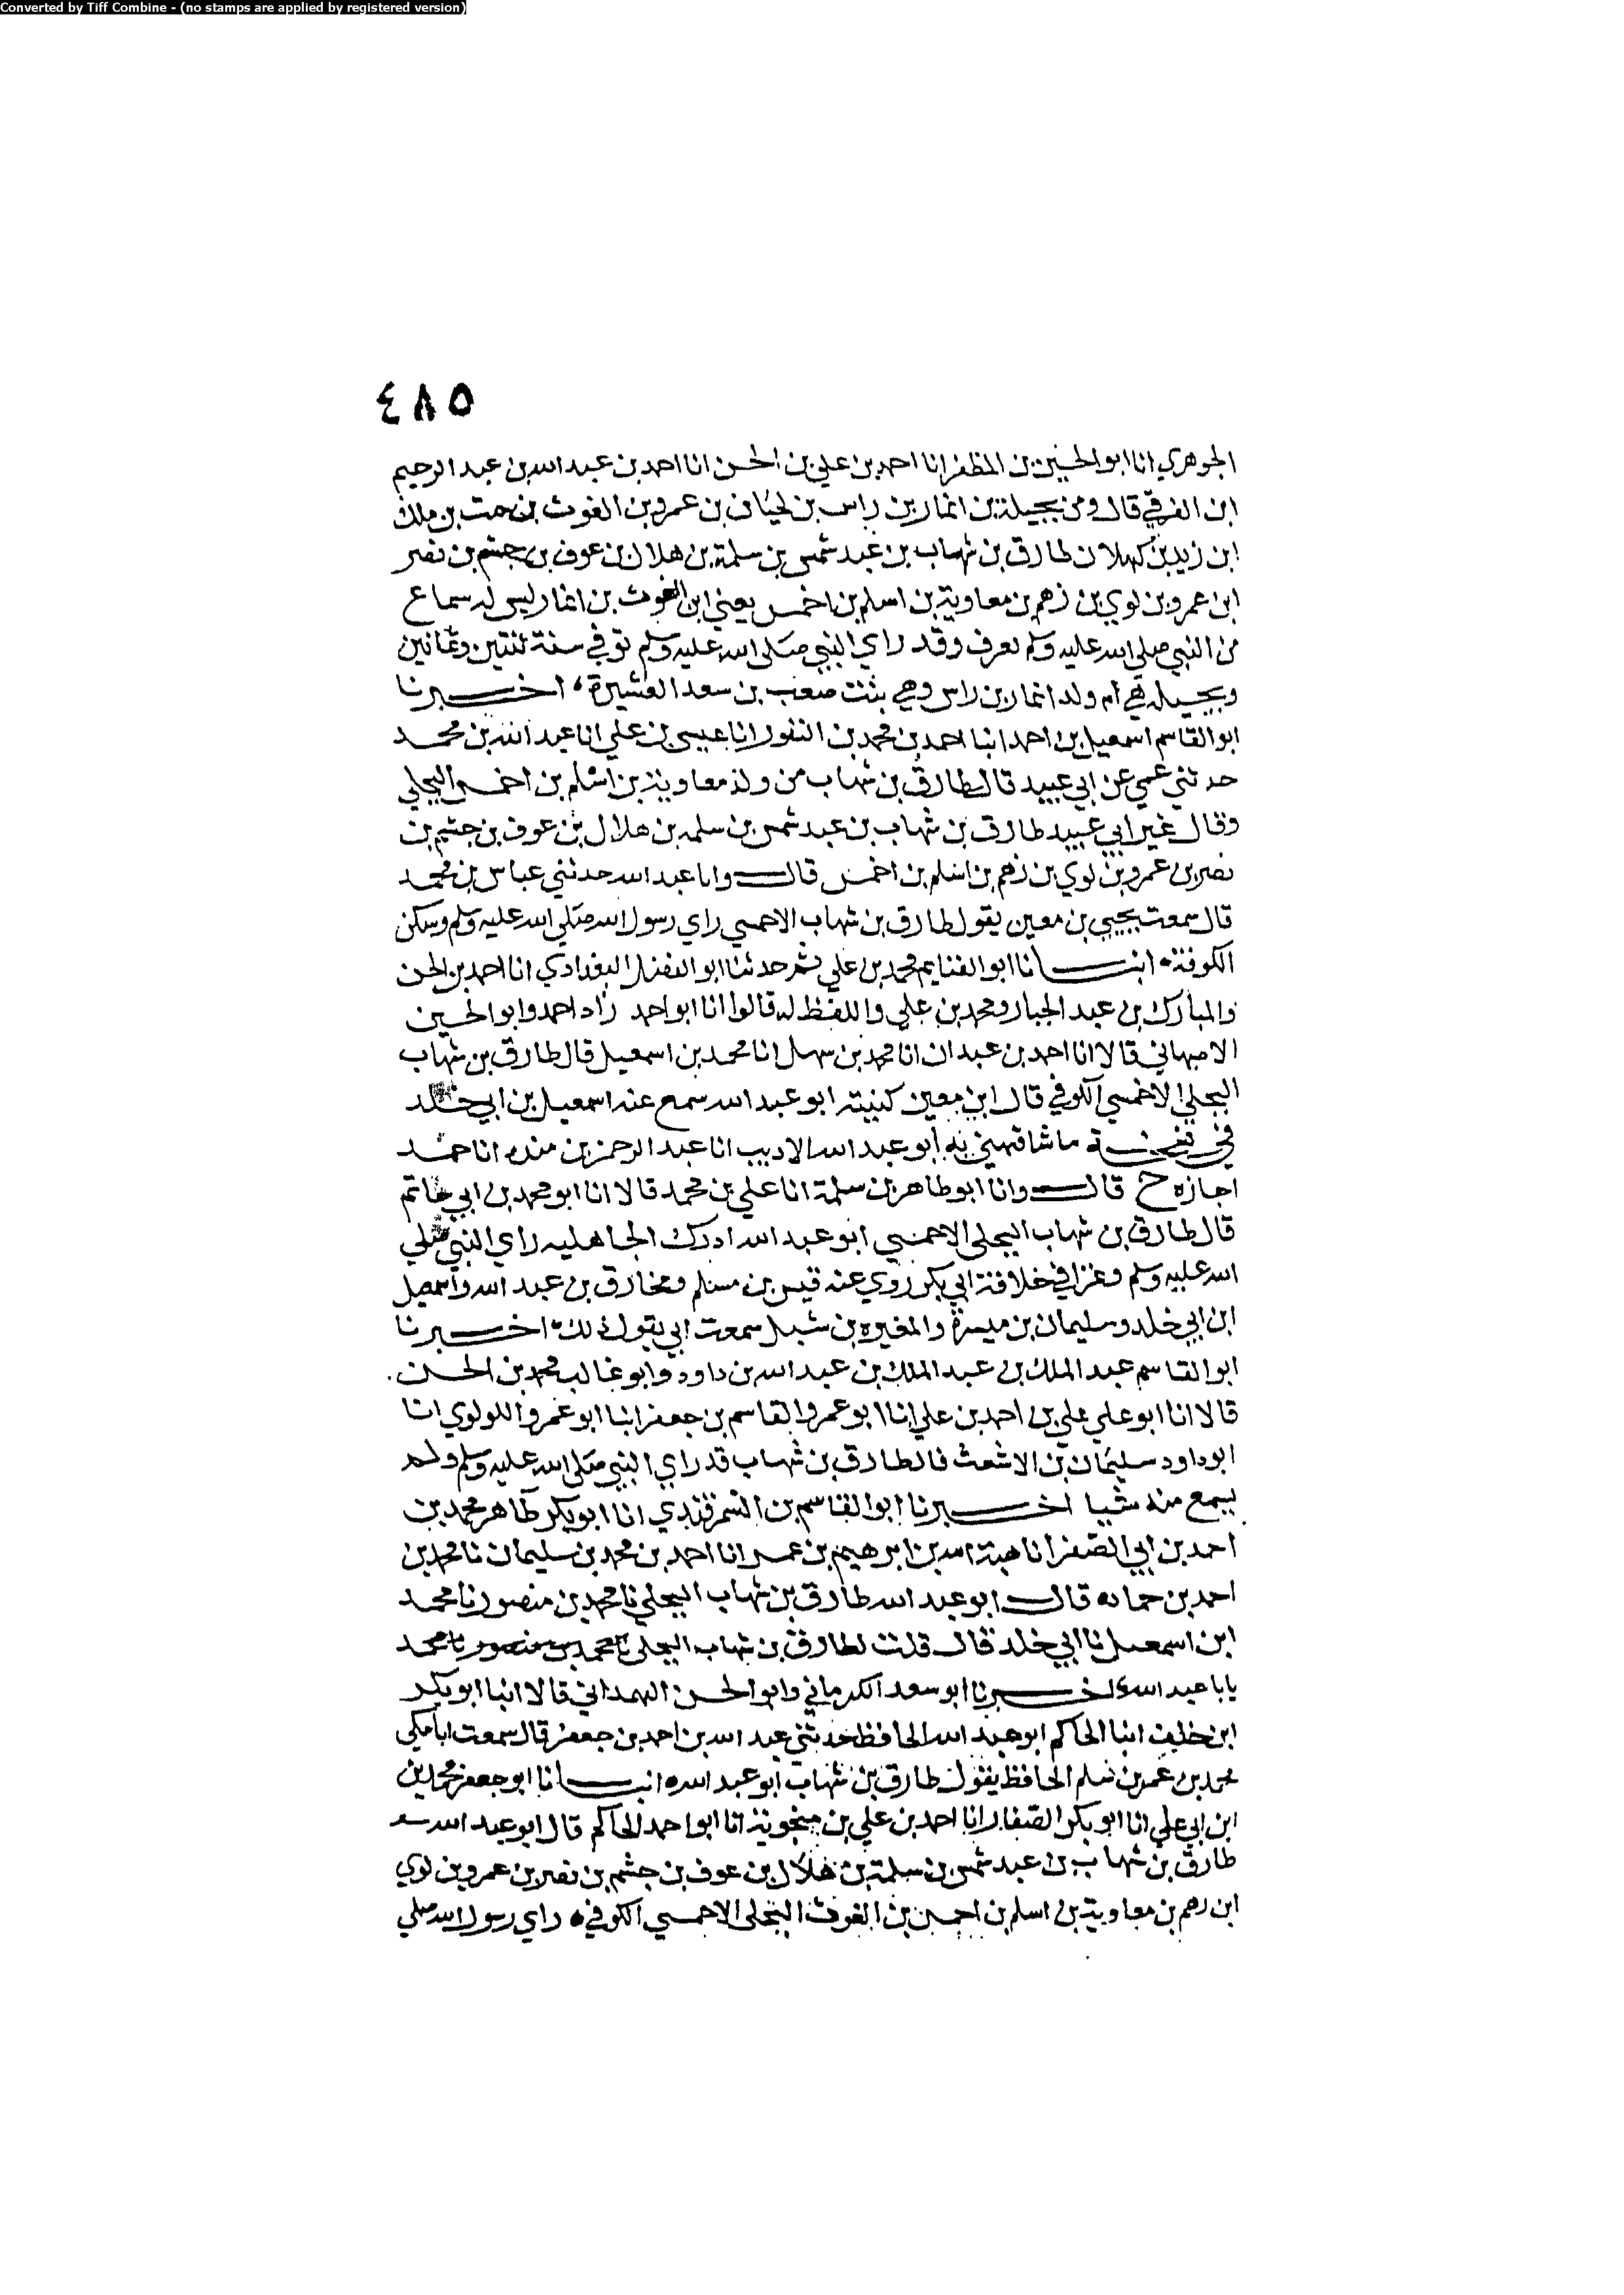 Converted by Tiff Combine - (no stamps are applied by registered version)
٤٨٥
الجوهري انا ابو الحسين بن المظفر انا احمد بن علي بن الحسن انا احمد بن عبد الله بن عبد الرحيم
ابن البرقي قال ومن بجيلة بن انمار بن راس بن لحيان بن عمرو بن الغوث بن نبت بن ملك
ابن زيد بن كهلان طارق بن شهاب بن عبد شمس بن سلمة بن هلال بن عوف بن جشم بن نصر
ابن عمرو بن لوي بن زهم بن معاوية بن اسلم بن احمس يعني ابن الغوث بن انمار ليس له سماع
من النبي صلى الله عليه وسلم نعرف وقد راي النبي صلى الله عليه وسلم توفي سنة ثنتين وثمانين
وبجيله هي ام ولد انمار بن راس وهي بنت صعب بن سعد العشيرة اخبرنا
ابو القاسم اسمعيل بن احمد انبا احمد بن محمد بن النقور انا عيسى بن علي انا عبد الله بن محمد
حدثني عمي عن ابي عبيد قال طارق بن شهاب من ولد معاوية بن اسلم بن احمس البجلي
وقال غير ابي عبيد طارق بن شهاب بن عبد شمس بن سلمه بن هلال بن عوف بن جشم بن
نصر بن عمرو بن لوي بن زهم بن اسلم بن احمس قال وانا عبد الله حدثني عباس بن محمد
قال سمعت يحيي بن معين يقول طارق بن شهاب الاحمسي راي رسول الله صلى الله عليه وسلم وسكن
الكوفة انبانا ابو الغنايم محمد بن علي ثم حدثنا ابو الفضل البغدادي انا احمد بن الحسن
والمبارك بن عبد الجبار ومحمد بن علي واللفظ له قالوا انا ابو احمد زاد احمد وابو الحسين
الاصبهاني قالا انا احمد بن عبدان انا محمد بن سهل انا محمد بن اسمعيل قال طارق بن شهاب
البجلي الاحمسي الكوفي قال ابن معين كنيته ابو عبد الله سمع عنه اسمعيل بن ابي خلد
في نسخة ما شافهني به ابو عبد الله الاديب انا عبد الرحمن بن منده انا حمد
اجازه ح قال وانا ابو طاهر بن سلمة انا علي بن محمد قالا انا ابو محمد بن ابي حاتم
قال طارق بن شهاب البجلي الاحمسي ابو عبد الله ادرك الجاهليه راي النبي صلي
الله عليه وسلم وغزا في خلافة ابي بكر روي عنه قيس بن مسلم ومخارق بن عبد الله واسمعيل
ابن ابي خلد وسليمان بن ميسرة والمغيره بن شبل سمعت ابي يقول ذلك اخبرنا
ابو القاسم عبد الملك بن عبد الملك بن عبد الله بن داود وابو غالب محمد بن الحسن
قالا انا ابو علي علي بن احمد بن علي انا ابو عمر والقاسم بن جعفر انبا ابو عمر واللولوي انا
ابو داود سليمان بن الاشعث قال طارق بن شهاب قد راي النبي صلى الله عليه وسلم ولم
يسمع منه شيا اخبرنا ابو القاسم بن السمرقندي انا ابو بكر طاهر محمد بن
احمد بن ابي الصقر انا هبة الله بن ابرهيم بن عمر انا احمد بن محمد بن سليمان نا محمد بن
احمد بن حماده قال ابو عبد الله طارق بن شهاب البجلي نا محمد بن منصور نا محمد
ابن اسمعيل نا ابي خلد قال قلت لطارق بن شهاب البجلي نا محمد بن منصور نا محمد
يا با عبد الله اخبرنا ابو سعد الكرماني وابو الحسن الهمداني قالا انبا ابو بكر
ابن خلف انبا الحاكم ابو عبد الله الحافظ حدثني عبد الله بن احمد بن جعفر قال سمعت ابا مكي
محمد بن عمر بن سلم الحافظ يقول طارق بن شهاب ابو عبد الله انبانا ابو جعفر محمد بن
ابن ابي علي انا ابو بكر الصفار انا احمد بن علي بن منجوية انا ابو احمد الحاكم قال ابو عبد الله
طارق بن شهاب بن عبد شمس بن سلمة بن هلال بن عوف بن جشم بن نصر بن عمرو بن لوي
ابن رهم بن معاوية بن اسلم بن احمس بن الغوث البجلي الاحمسي الكوفي راي رسول الله صلي